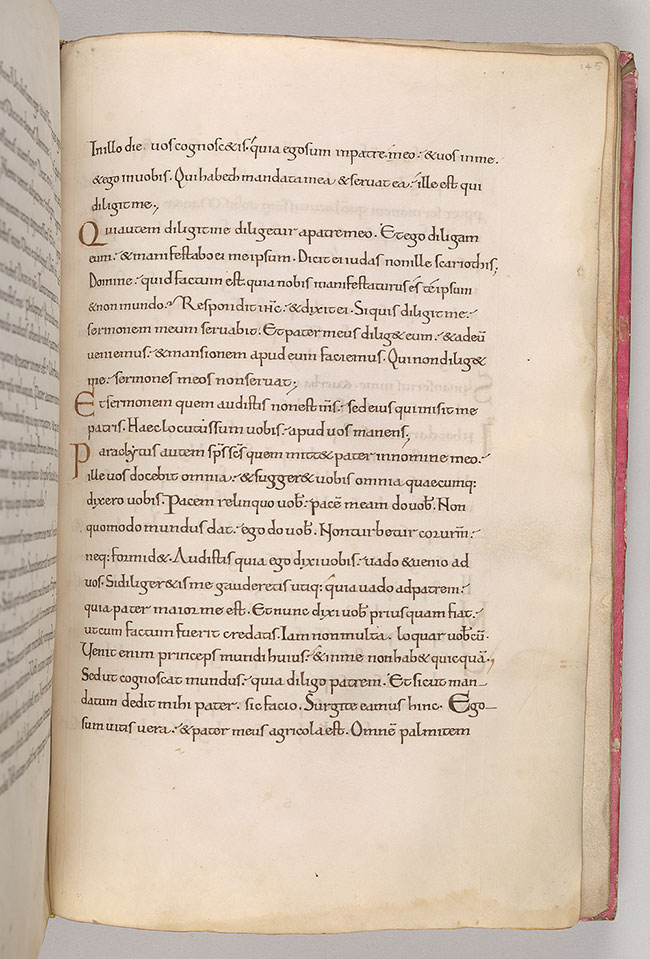 145
In illo die vos cognosc&is. quia ego sum in patre meo. & vos in me.
& ego in vobis. Qui hab& mandata mea & servat ea. ille est qui
diligit me;
Qui autem diligit me diligetur a patre meo. Et ego diligam
eum. & manifestabo ei me ipsum. Dicit ei iudas non ille scariothis;
Domine. quid factum est. quia nobis manifestaturus es te ipsum
& non mundo? Respondit ihc. & dixit ei. Si quis diligit me.
sermonem meum servabit. Et pater meus dilig& eum. & ad eū
veniemus. & mansionem apud eum faciemus. Qui non dilig&
me. sermones meos non servat;
Et sermonem quem audistis non est m̄s. sed eius qui misit me
patris. Haec locutus sum vobis. apud vos manens;
Paraclytus autem sp̄s sc̄s quem mitt& pater in nomine meo.
ille vos docebit omnia. & sugger& vobis omnia quaecumq:
dixero vobis. Pacem relinquo vob̄. pacē meam do vob̄. Non
quomodo mundus dat. ego do vob̄. Non turbetur cor vr̄m.
neq: formid&. Audistis quia ego dixi vobis. vado & venio ad
vos. Si diliger&is me gauderetis utiq: quia vado ad patrem.
quia pater maior me est. Et nunc dixi vob̄ prius quam fiat.
ut cum factum fuerit credatis. Iam non multa loquar vob̄cū.
Venit enim princeps mundi huius. & in me non hab& quicquā;
Sed ut cognoscat mundus. quia diligo patrem. Et sicut man-
datum dedit mihi pater. sic facio. Surgite eamus hinc. Ego
sum vitis vera. & pater meus agricola est. Omnē palmitem